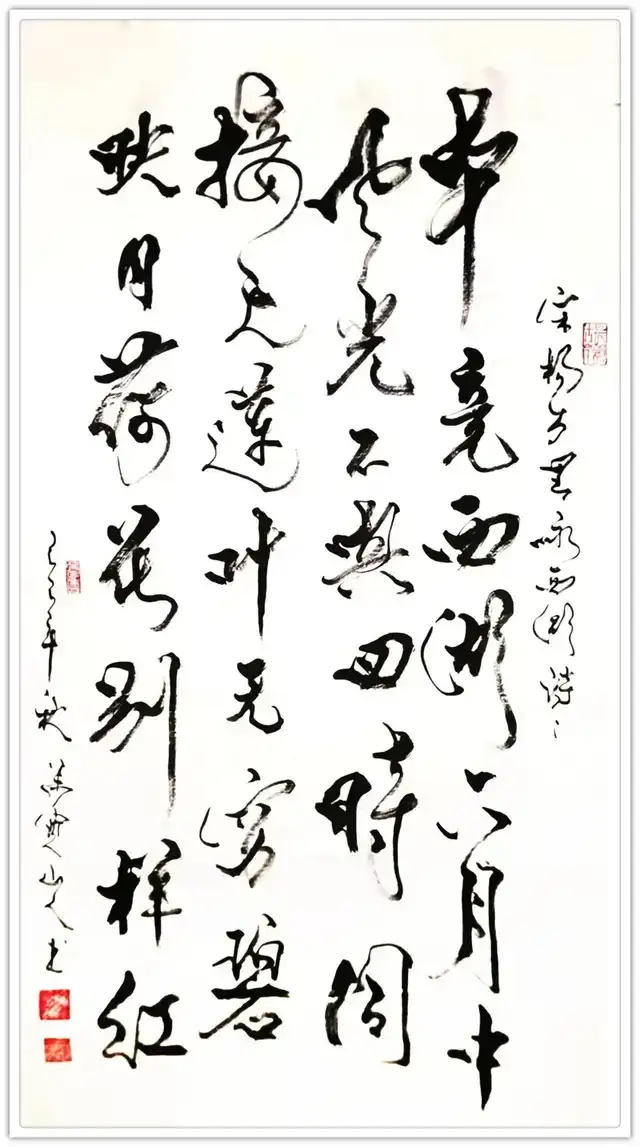 宋杨万里咏西湖诗
毕竟西湖六月中
风光不與四時同
接天蓮叶无穷碧
映日荷花别样红
年秋 山人书